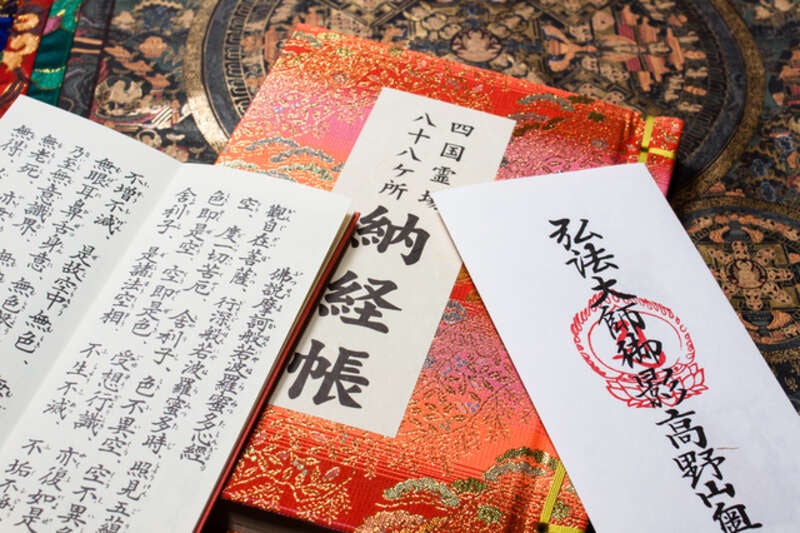 佛説摩訶般若波羅蜜多心經。
觀自在菩薩 行深般若波羅蜜多時 照見五蘊
空、度一切苦厄 舍利子 色不異空 空不異
色即是空 空即是色 受想行識 亦復如是
舍利子 是諸法空相 不生不滅 不垢不
不增不減、是故空中、無色、
無眼耳鼻舌身意、無色
乃至無意識界、
無老死、亦
無得
四国霊場
八十八ヶ所
納経帳
弘法大師御影高野山奥